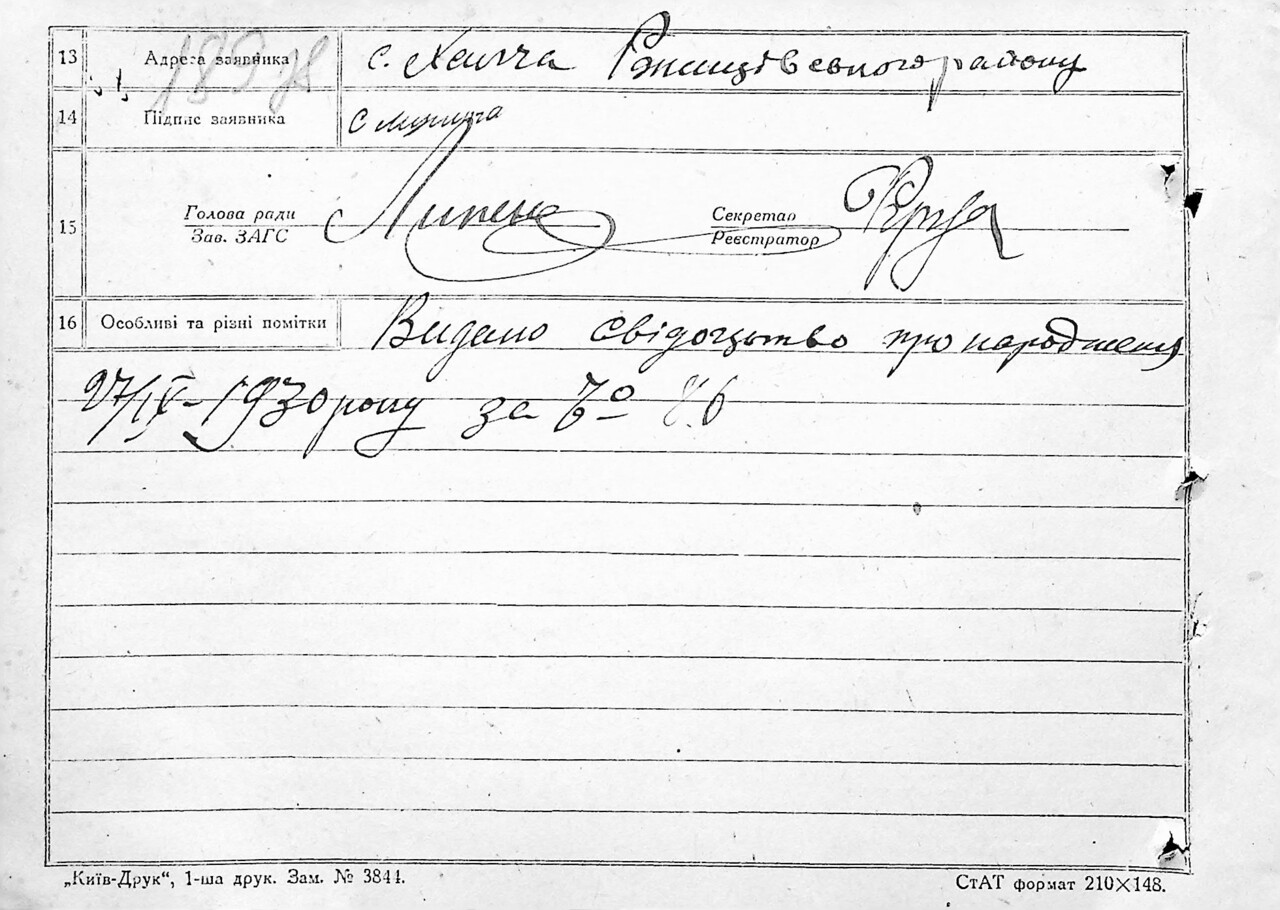 13 Адреса заявника с. Халча Ржищівського району
14 Підпис заявника
15 Голова ради Секретар
Зав. ЗАГС Реєстратор
16 Особливі та різні помітки Видано свідоцтво про народження
27/IX-1930 року за № 86
„Київ-Друк“, 1-ша друк. Зам. № 3844. СтАТ формат 210×148.